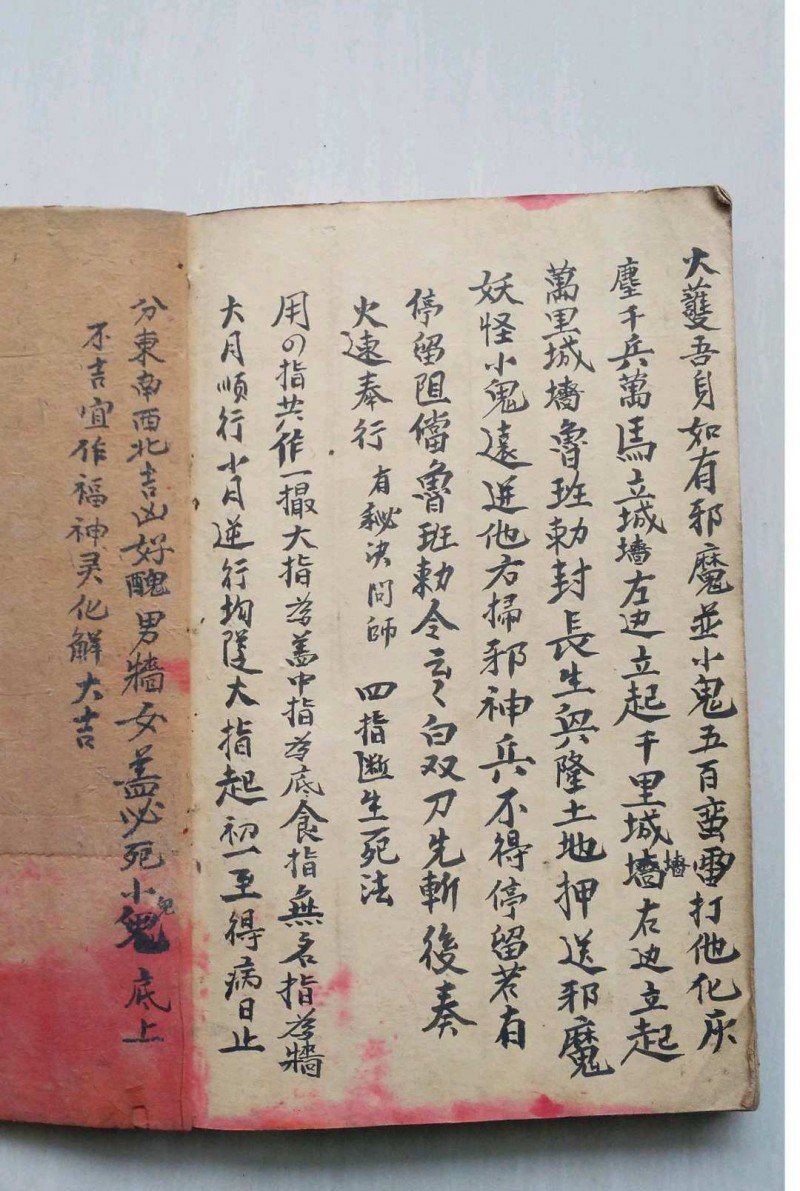 大護吾身如有邪魔並小鬼五百蛮雷打他化灰
塵千兵萬馬立城墻左边立起千里城墻墻右边立起
萬里城墻魯班勅封長生興隆土地押送邪魔
妖怪小鬼遠迸他右掃邪神兵不得停留若有
停留阻儅魯班勅令云々白双刀先斬後奏
火速奉行 有秘决问師 四指断生死法
用の指共作一撮大指為盖中指為底食指無名指為牆
大月順行小月逆行均隨大指起初一至得病日止
分東南西北吉凶好醜男牆女盖必死小鬼鬼底上
不吉宜作福神灵化解大吉